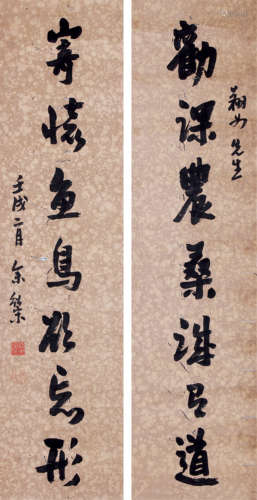 勸課農桑誠有道
翔如先生
寄懷魚鳥欲忘形
壬戌二月余